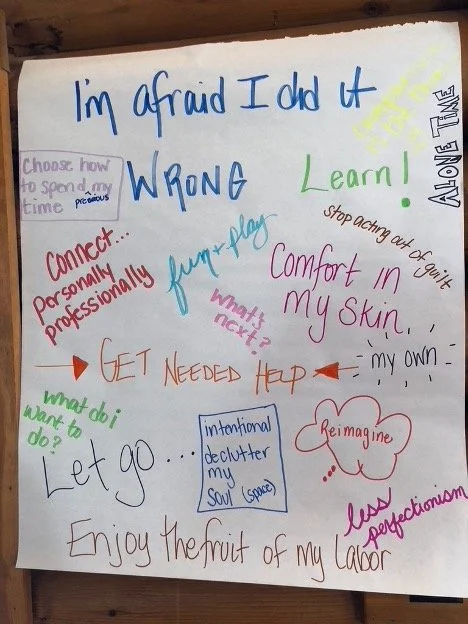 I'm afraid I did it
WRONG
ALONE TIME
Choose how
to spend my
precious
time
Learn!
stop acting out of guilt
Connect...
personally
professionally
fun + play
Comfort in
my skin
What's
next?
GET NEEDED HELP
my own
what do i
want to
do?
Let go ...
intentional
declutter
my
Soul (space)
Reimagine
less
perfectionism
Enjoy the fruit of my labor